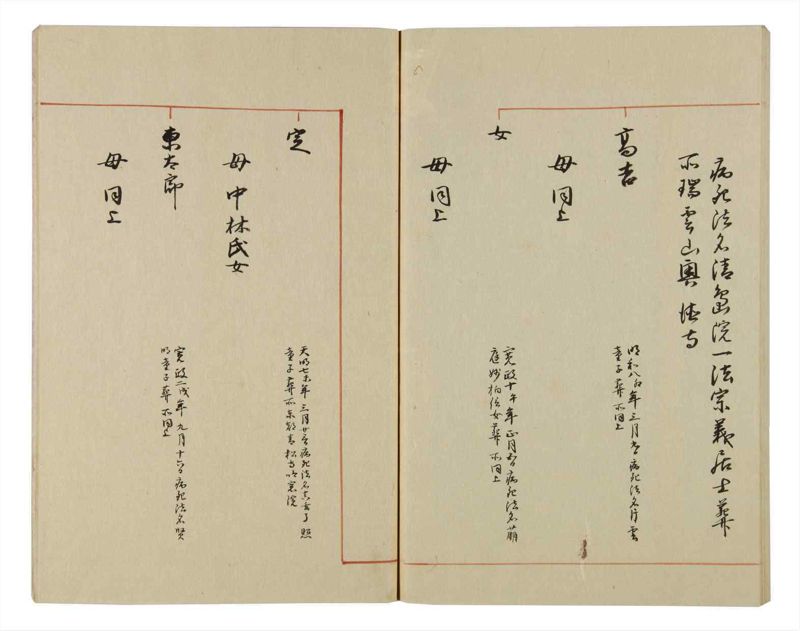 病死法名清嶌院一法宗義居士葬
所瑞雲山興徳寺
高吉
母同上
明和八卯年三月 病死法名片雲
童子葬所同上
女
母同上
寛政十午年正月 病死法名萠
庭妙柏信女葬所同上
定
母中林氏女
天明七未年三月廿 病死法名 照
童子葬所 松寺 窓院
東太郎
母同上
寛政二戌年九月十六日病死法名賢
明童子葬所同上